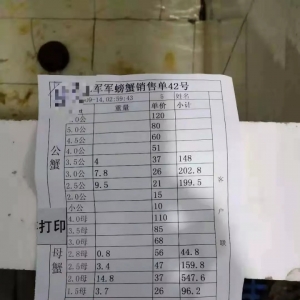 军军螃蟹销售单42号
重量 单价 小计
公蟹
120
5.0公 80
4.0公 60
4.0公 51
3.5公 4 37 148
3.0公 7.8 26 202.8
2.5公 9.5 21 199.5
2.0公 15
小公 10
打印
母蟹
4.0母 110
3.5母 85
3.0母 68
2.8母 0.8 56 44.8
2.5母 3.4 47 159.8
2.0母 14.8 37 547.6
1.5母 3.7 26 96.2